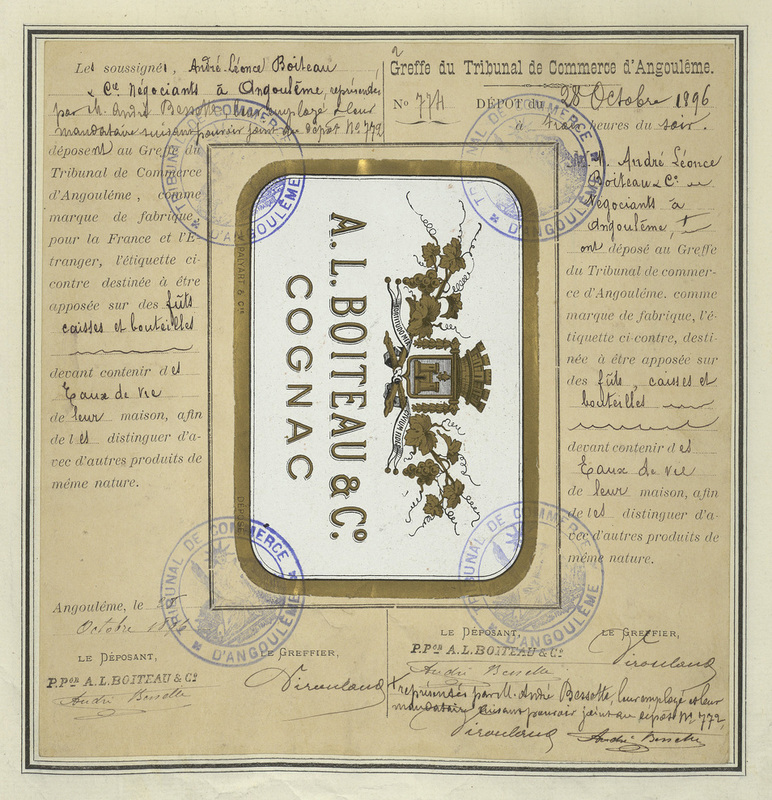 Les soussignés, André-Léonce Boiteau
& Cie Négociants à Angoulême, représentés
par M. André Bessotte, leur employé & leur
mandataire suivant pouvoir joint au dépôt No 772
déposent au Greffe du
Tribunal de Commerce
d'Angoulême, comme
marque de fabrique,
pour la France et l'É-
tranger, l'étiquette ci-
contre destinée à être
apposée sur des fûts
caisses et bouteilles
devant contenir des
Eaux de vie
de leur maison, afin
de les distinguer d'a-
vec d'autres produits de
même nature.
Angoulême, le 28
Octobre 1896
LE DÉPOSANT,
LE GREFFIER,
P.Pon A.L.BOITEAU & Co
André Bessotte
Virouland
A. L. BOITEAU & Co.
COGNAC
DÉPOSÉ
2
Greffe du Tribunal de Commerce d'Angoulême.
No 774
DÉPÔT du 28 Octobre 1896
à trois heures du soir.
M. André Léonce
Boiteau & Cie
Négociants à
Angoulême,
ont déposé au Greffe
du Tribunal de commer-
ce d'Angoulême. comme
marque de fabrique, l'é-
tiquette ci-contre, desti-
née à être apposée sur
des fûts, caisses et
bouteilles
devant contenir des
Eaux de vie
de leur maison, afin
de les distinguer d'a-
vec d'autres produits de
même nature.
LE DÉPOSANT,
LE GREFFIER,
P.Pon A.L.BOITEAU & Co
André Bessotte
Virouland
représentés par M. André Bessotte, leur employé et leur
mandataire suivant pouvoir joint au dépôt No 772
Virouland
André Bessotte
TRIBUNAL DE COMMERCE
D'ANGOULÊME
TRIBUNAL DE COMMERCE
D'ANGOULÊME
TRIBUNAL DE COMMERCE
D'ANGOULÊME
TRIBUNAL DE COMMERCE
D'ANGOULÊME